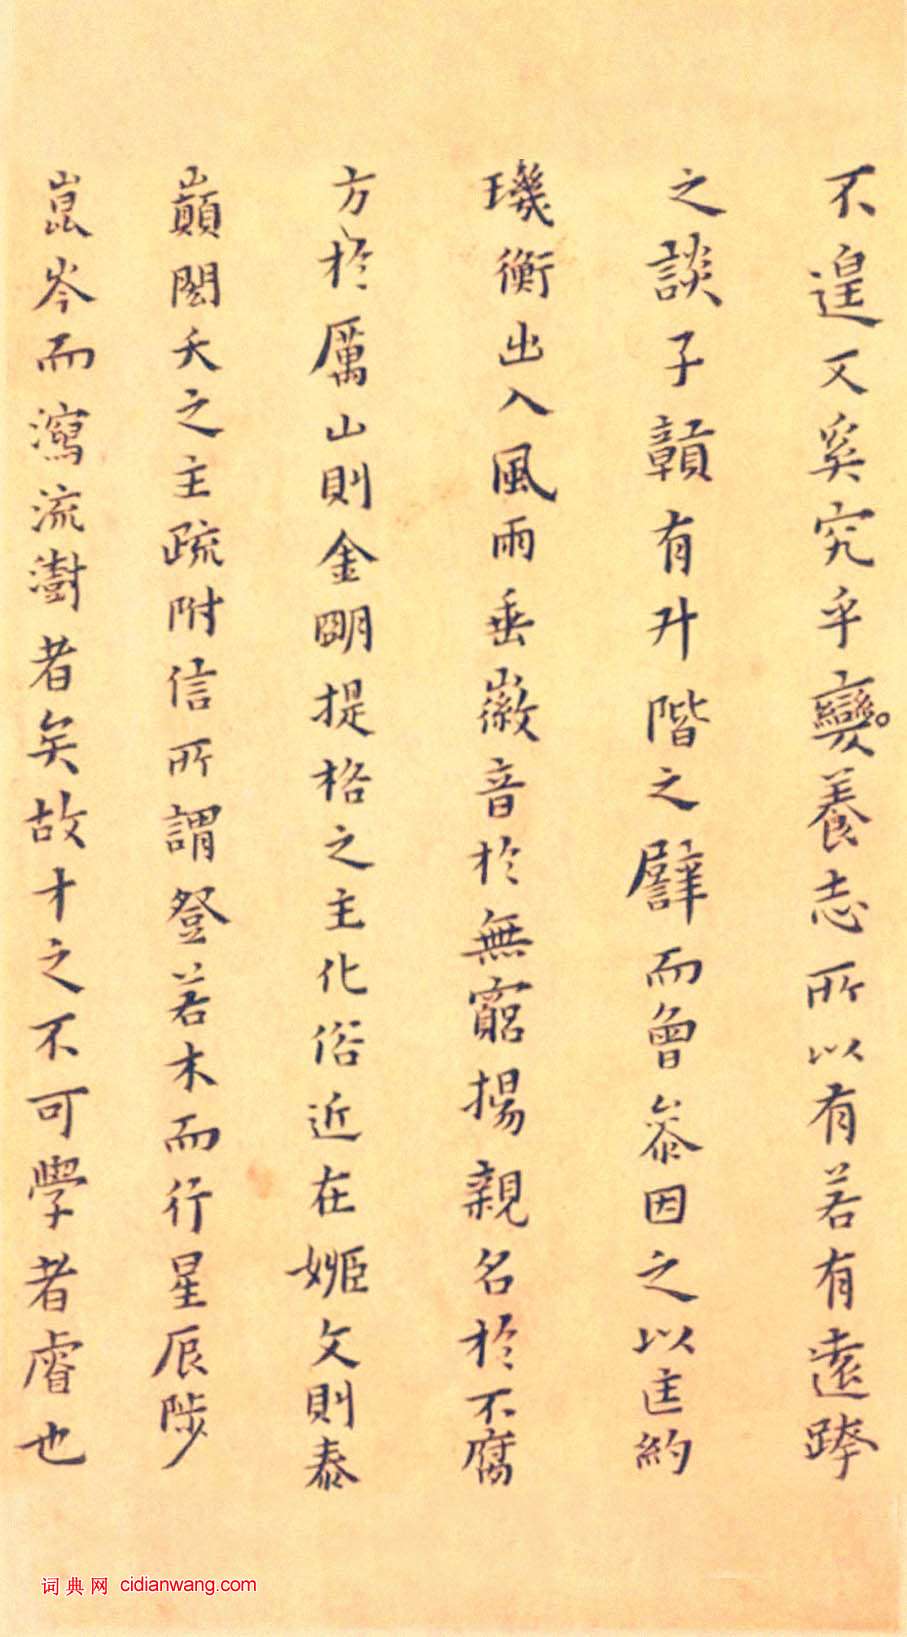 不遑又奚究乎變養志所以有若有遠蹕
之談子贛有升階之譬而曾叅因之以匡約
璣衡出入風雨垂徽音於無窮揚親名於不腐
方於厲山則金朙提格之主化俗近在姬文則泰
巔閎夭之主疏附信所謂登若木而行星辰陟
崑岑而瀉流澍者矣故才之不可學者睿也
词典网 cidianwang.com